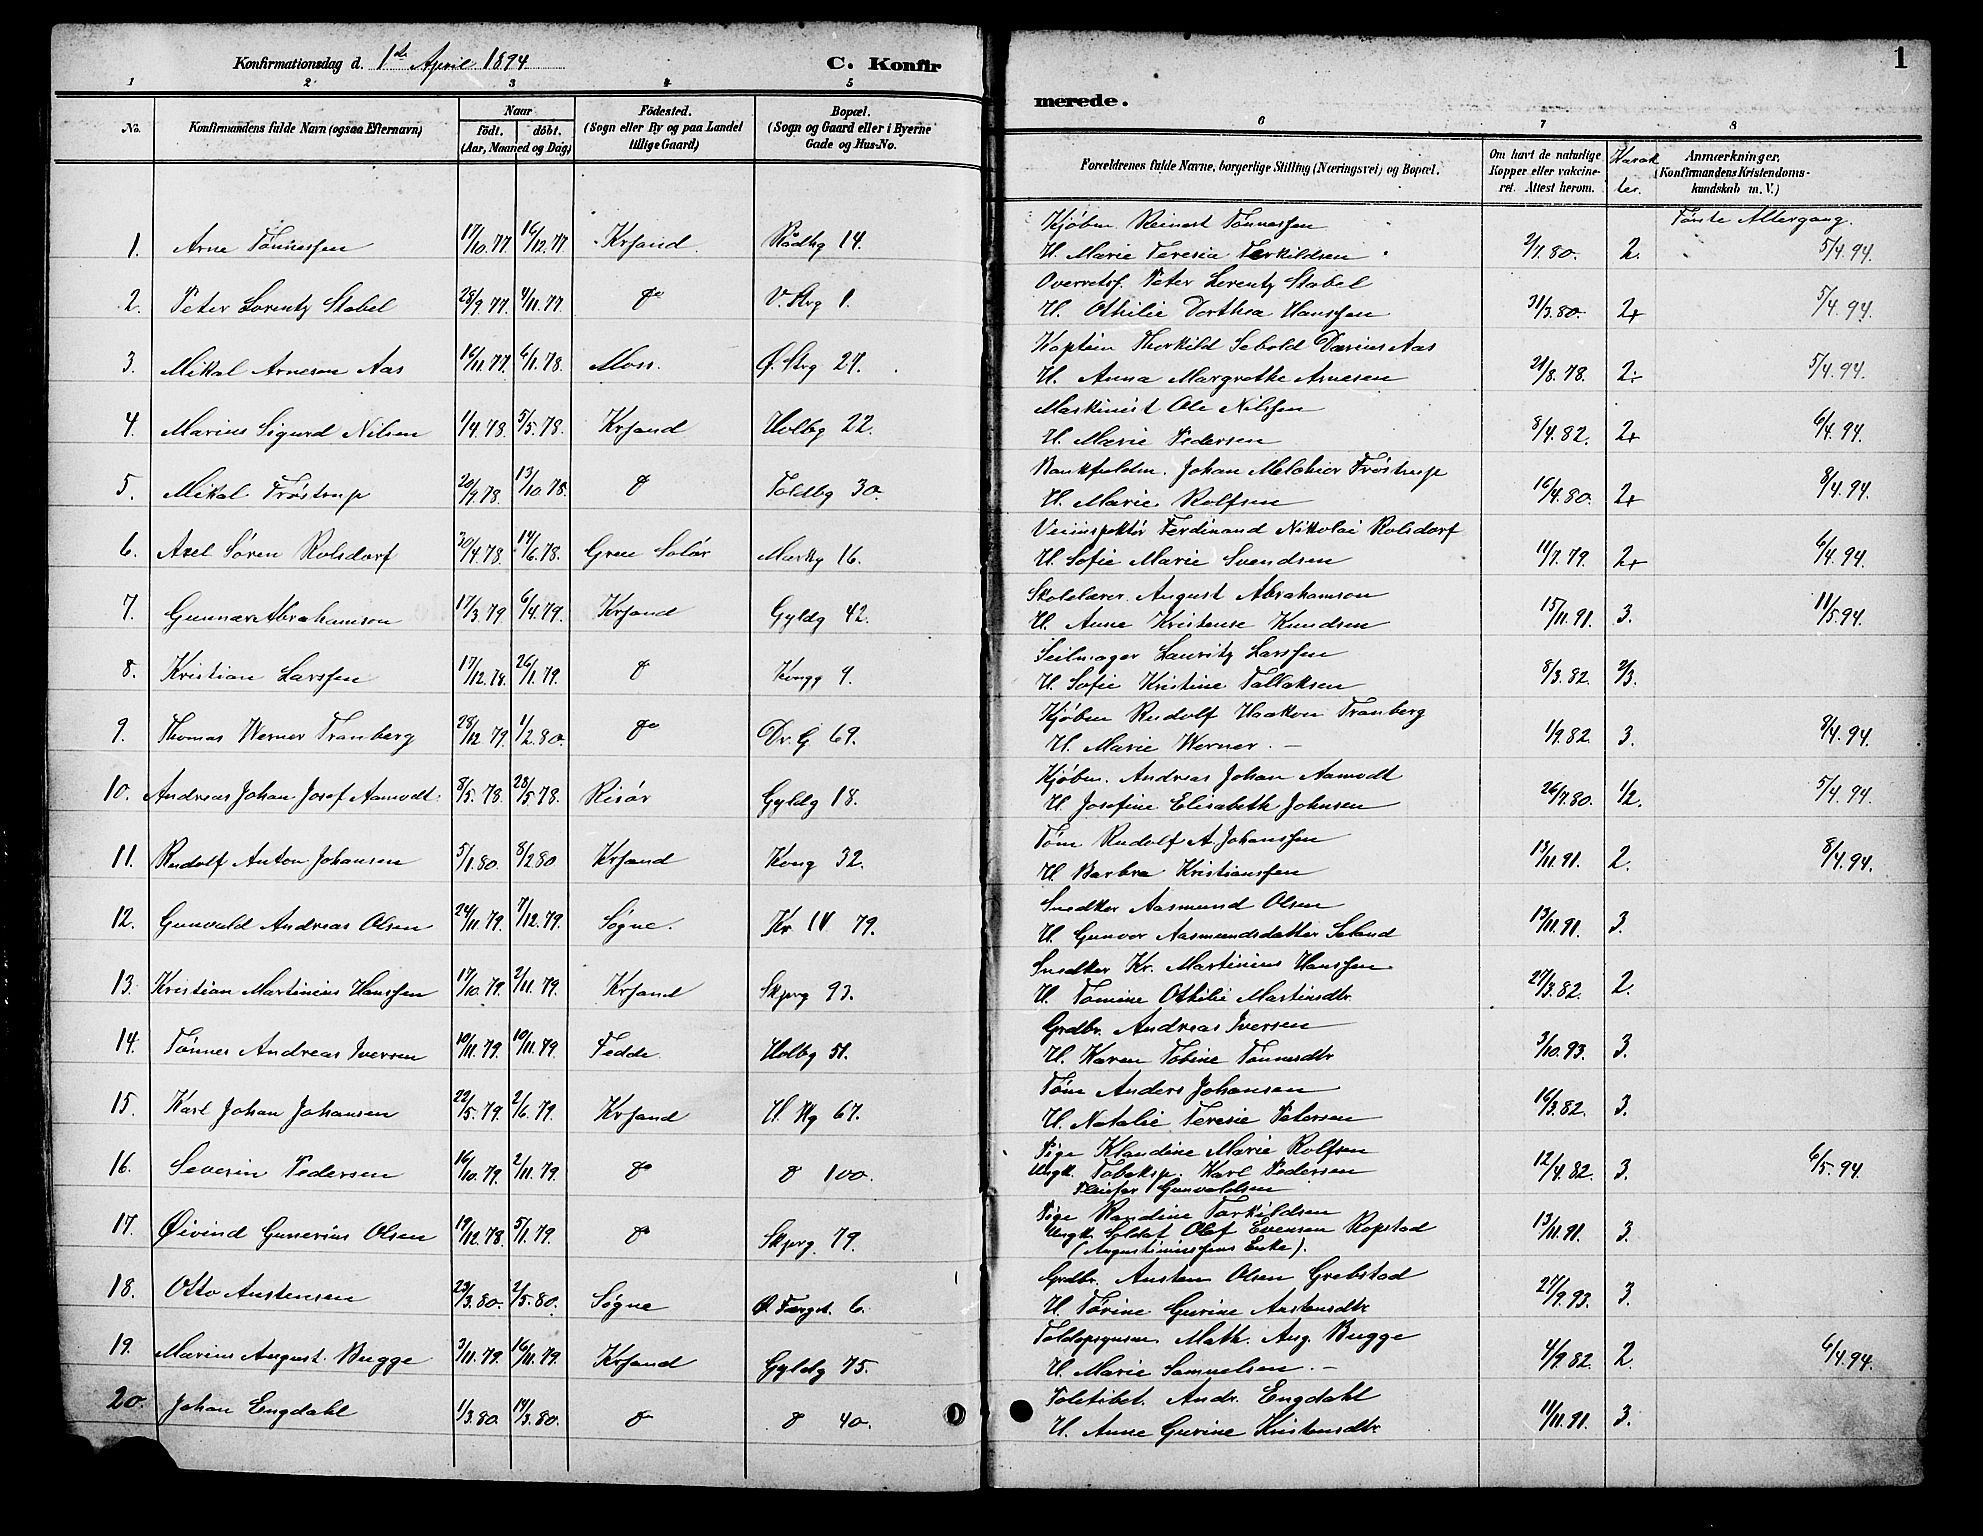 Konfirmationsdag d. 1ste April 1894
C. Konfirmerede.
1
1 2 3 4 5 6 7 8
No. Konfirmandens fulde Navn (ogsaa Efternavn) Naar født. døbt. (Aar, Maaned og Dag) Fødested. (Sogn eller By og paa Landet tillige Gaard) Bopæl. (Sogn og Gaard eller i Byerne Gade og Hus-No. Forældrenes fulde Navne, borgerlige Stilling (Næringsvei) og Bopæl. Om havt de naturlige Kopper eller vakcineret. Attest herom. Karakter. Anmærkninger. (Konfirmandens Kristendomskundskab m. V.)
Første Altergang.
Kjøbm. Reinert Tønnessen
1. Arne Tønnessen 17/10.77 16/12.77 Krsand Rådhg 14. H. Marie Teresia Terkildsen 2/7.80. 2. 5/4.94.
Overretsf. Peter Lorentz Stabel
2. Peter Lorentz Stabel 28/9.77 4/11.77 do V. Strg 1. H. Othilie Dorthea Hanssen 31/3.80. 2+ 5/4.94.
Kaptein Thorkild Sebold Darius Aas
3. Mikal Arneson Aas 16/11.77 6/1.78. Moss. Ø. Strg 27. H. Anna Margrethe Arnesen 21/8.78. 2÷ 5/4.94.
Maskinist Ole Nilssen
4. Marius Sigurd Nilsen 1/4.78. 5/5.78. Krsand Holbg 22. H. Marie Pedersen 8/4.82. 2+ 6/4.94.
Bankfuldm. Johan Melchior Frøstrup
5. Mikal Frøstrup 20/9.78. 13/10.78. do Toldbg 30. H. Marie Rolfsen 16/4.80. 2+ 8/4.94.
Veiinspektør Ferdinand Nikolai Rolsdorf
6. Axel Søren Rolsdorf 20/4.78. 14/6.78. Grue Solør Markg 16. H. Sofie Marie Svendsen 11/7.79. 2+ 6/4.94.
Skolelærer August Abrahamson
7. Gunnar Abrahamson 17/3.79 6/4.79. Krsand Gyldg 42. H. Anne Kristense Knudsen 15/11.91. 3. 11/5.94.
Seilmager Lauritz Larssen
8. Kristian Larssen 17/12.78. 26/1.79. do Kongg 9. H. Sofie Kristine Tallaksen 8/3.82. 2/3.
Kjøbm Rudolf Haakon Tranberg
9. Thomas Werner Tranberg 28/12.79. 1/2.80. do Dr. G 69. H. Marie Werner. — 1/9.82. 3. 8/4.94.
Kjøbm. Andreas Johan Aamodt
10. Andreas Johan Josef Aamodt. 8/5.78. 28/5.78. Risør Gyldg 18. H. Josefine Elisabeth Johnsen 26/7.80. 1/2. 5/4.94.
Tøm Rudolf A. Johanssen
11. Rudolf Anton Johansen 5/1.80. 8/2.80 Krsand Kong 32. H. Barbra Kristianssen 13/11.91. 2. 8/4.94.
Snedker Aasmund Olsen
12. Gunvald Andreas Olsen 24/11.79. 7/12.79. Søgne. Kr IV 79. H. Gunvor Aasmundsdatter Søland 13/11.91. 3.
Snedker Kr. Martinius Hanssen
13. Kristian Martinius Hanssen 17/10.79. 2/11.79. Krsand Skjerg 93. H. Tomine Othilie Martinsdtr 27/3.82. 2.
Grdbr. Andreas Iversen
14. Tønnes Andreas Iversen 10/11.79. 10/11.79. Fedde. Holbg 51. H. Karen Tobine Tønnesdtr 3/10.93. 3.
Tøm Anders Johansen
15. Karl Johan Johansen 22/5.79. 2/6.79. Krsand H. Kg 67. H. Natalie Teresie Petersen 16/3.82. 3.
Pige Klaudine Marie Rolfsen
16. Severin Pedersen 16/10.79. 2/11.79. do do 100. Ungk. Tobaksp. Karl Pedersen 12/4.82. 3. 6/5.94.
Gunvaldsen
Pige Randine Tarkildsen
17. Øivind Gunerius Olsen 19/12.78. 5/1.79. do Skjerg 79. Ungk. Soldat Olaf Evensen Ropstad 13/11.91. 3.
(Augustinussens Enke).
Grdbr. Austen Olsen Grebstad
18. Otto Austensen 23/3.80. 2/5.80. Søgne Ø. Færgst. 6. H. Tørine Gurine Austensdtr 27/9.93. 3.
Toldopsynsm. Math. Aug. Bugge
19. Marius August Bugge 3/11.79. 16/11.79. Krsand Gyldg 75. H. Marie Samuelsen. — 4/9.82. 2. 6/4.94.
Politibet. Andr. Engdahl
20. Johan Engdahl 1/3.80. 14/3.80. do do 40. H. Anne Gurine Kristensdtr 11/11.91. 3.